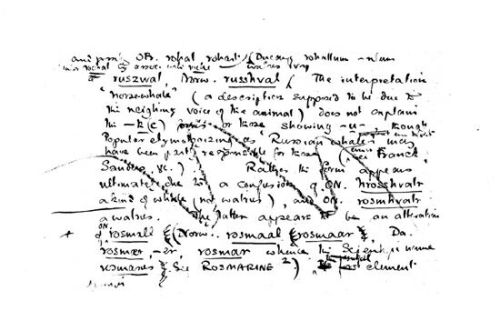 and OF. rohal rohart (Ducange rohallum
ruszwal, Norw. russhval. The interpretation
"horsewhale" (a description supposed to be due to
the neighing voice of the animal) does not explain
the -k(e) or those showing -u-, though
Popular etymologizing as "Russian whale" may
have been partly responsible for these (see Franck,
Sanders, &c.). Rather the form appears
ultimately due to a confusion of ON. hrosshvalr
a kind of whale (not walrus), and ON. rosmhvalr
a walrus. The latter appears to be an alteration
of rosmall (Norw. rosmaal rosmaar), Da.
rosmer, -ar, rosmar whence the Scientific name
rosmarus. See ROSMARINE 2), element